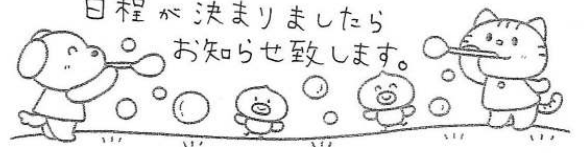 日程が決まりましたら
お知らせ致します。